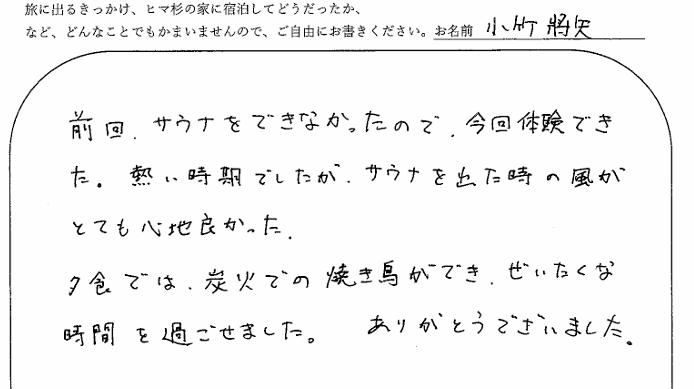 旅に出るきっかけ、ヒマ杉の家に宿泊してどうだったか、
など、どんなことでもかまいませんので、ご自由にお書きください。お名前 小竹 将矢
前回、サウナをできなかったので、今回体験でき
た。熱い時期でしたが、サウナを出た時の風が
とても心地良かった。
夕食では、炭火での焼き鳥ができ、ぜいたくな
時間を過ごせました。 ありがとうございました。